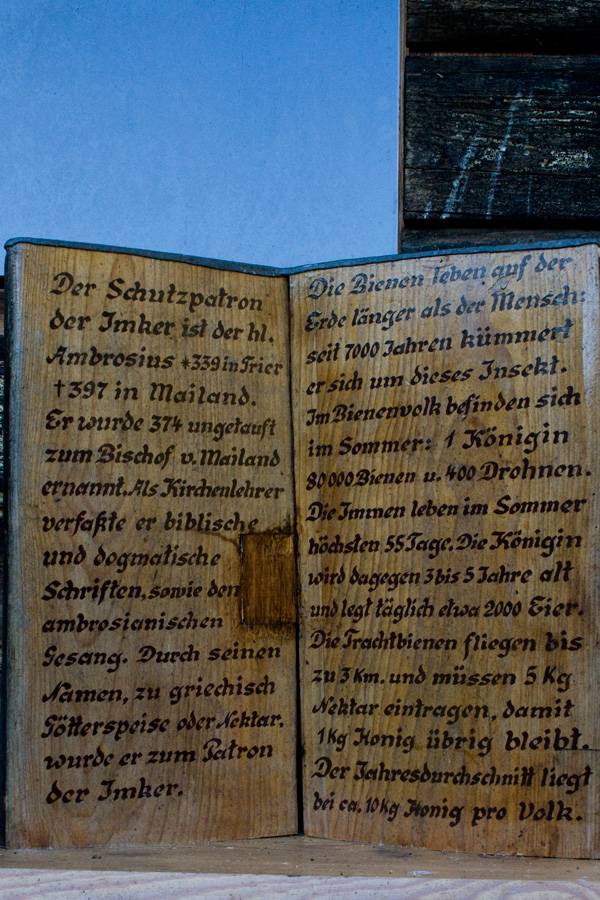 Der Schutzpatron
der Imker ist der hl.
Ambrosius *339 in Trier
†397 in Mailand.
Er wurde 374 ungetauft
zum Bischof v. Mailand
ernannt. Als Kirchenlehrer
verfaßte er biblische
und dogmatische
Schriften, sowie den
ambrosianischen
Gesang. Durch seinen
Namen, zu griechisch
Götterspeise oder Nektar.
wurde er zum Patron
der Imker.
Die Bienen leben auf der
Erde länger als der Mensch:
seit 7000 Jahren kümmert
er sich um dieses Insekt.
Im Bienenvolk befinden sich
im Sommer: 1 Königin
80000 Bienen u. 400 Drohnen.
Die Immen leben im Sommer
höchsten 55 Tage. Die Königin
wird dagegen 3 bis 5 Jahre alt
und legt täglich etwa 2000 Eier.
Die Trachtbienen fliegen bis
zu 3 Km. und müssen 5 Kg
Nektar eintragen, damit
1 Kg Honig übrig bleibt.
Der Jahresdurchschnitt liegt
bei ca. 10 Kg Honig pro Volk.